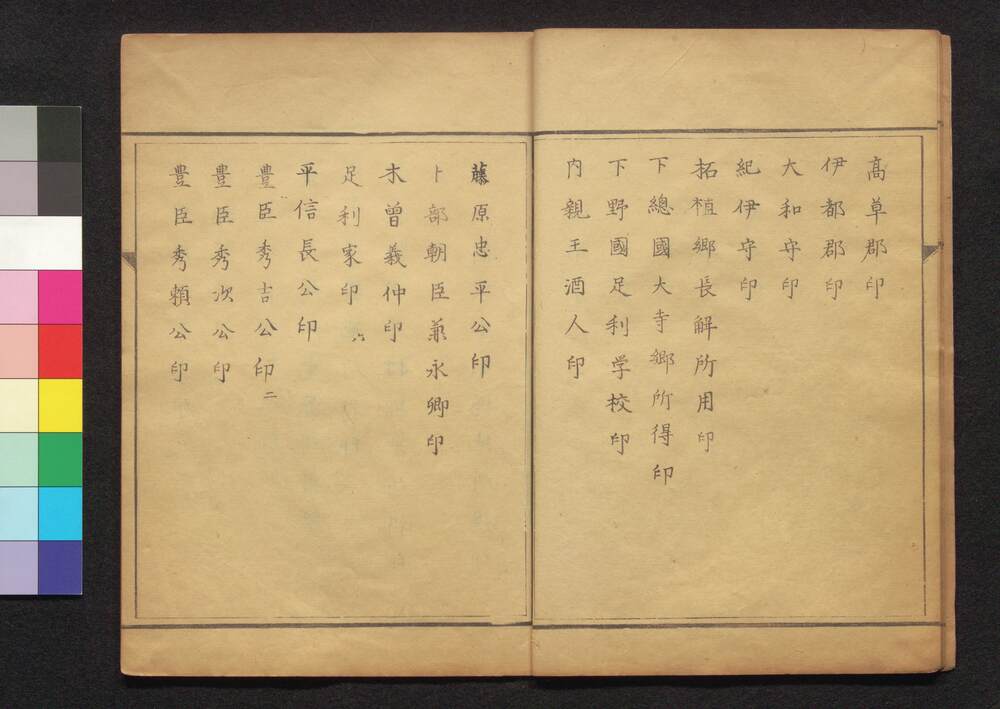 高草郡印
伊都郡印
大和守印
紀伊守印
拓植郷長解所用印
下總國大寺郷所得印
下野國足利学校印
内親王酒人印
藤原忠平公印
卜部朝臣兼永卿印
木曽義仲印
足利家印 六
平信長公印
豊臣秀吉公印 二
豊臣秀次公印
豊臣秀頼公印